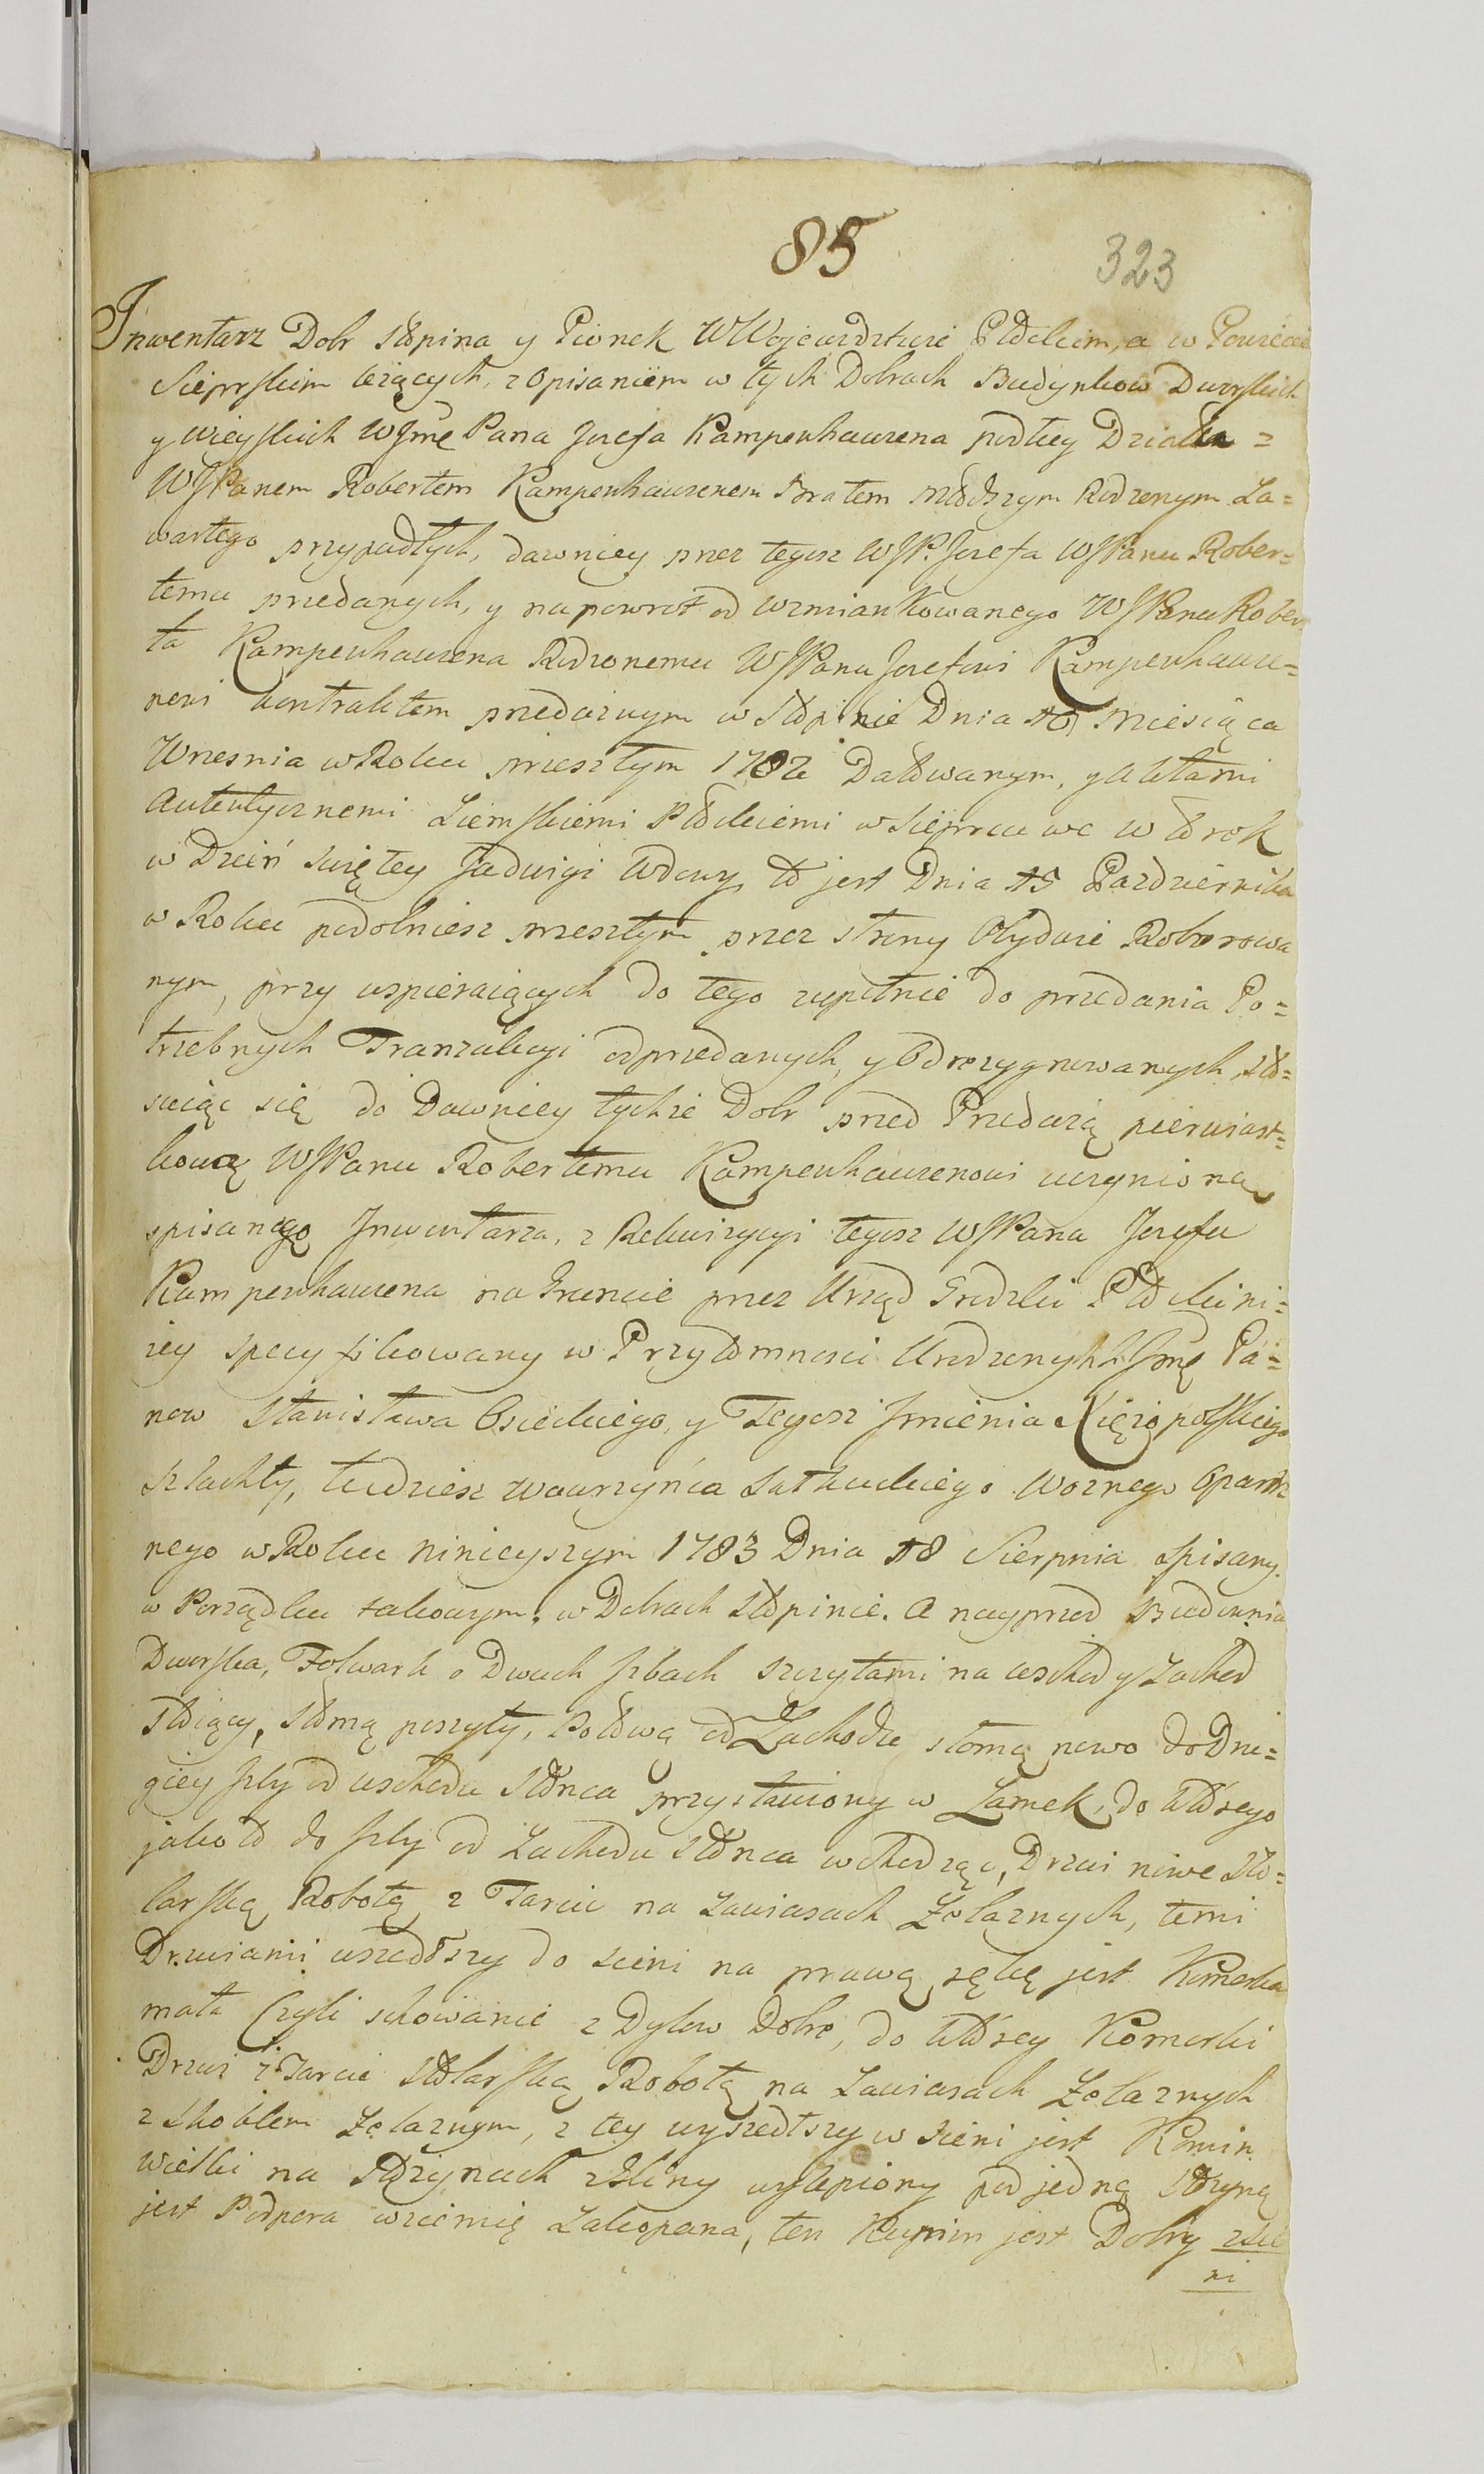 85
323
Inwentarz Dobr Stopina y Pionek W Wojewdztwie Płockim, a w Powiecie
Sieprskim leżących, z Opisaniem w tych Dobrach Budynkow Dworskich
y wieyskich WJmę Pana Jozefa Kampenhauzena podług Działu =
WJPanem Robertem Kampenhauzenem Bratem młodszym Rodzonym Za=
wartego przypadłych, dawniey przez tegosz WJP. Jozefa WJPanu Rober=
temu przedanych, y napowrot od wzmiankowanego WJPana Rober
ta Kampenhauzena Rodzonemu WJPanu Jozefowi Kampenhauze=
nowi kontraktem przedażnym w Stopinie Dnia 16 Miesiąca
Wrzesnia w Roku przeszłym 1782 Datowanym, y Aktami
Autentycznemi Ziemskiemi Płockiemi w Sieprcu we wtorek
w Dzień swiętey Jadwigi Wdowy, to jest Dnia 15 Pazdziernika
w Roku podobniesz przeszłym przez strony Obydwie Roborowa
nym, przy wspieraiących do tego zupełnie do przedania Po=
trzebnych Tranzakcyi odprzedanych, y Odrezygnowanych, sto=
suiąc się do Dawniey tychże Dobr przed Przedażą pierwiast=
kową WJPanu Robertemu Kampenhauzenowi uczynioną
spisanego Inwentarza, z Rekwizycyi tegosz WJPana Jozefa
Kampenhauzena na Gruncie przez Urząd Grodzki Płocki ni=
zey specyfikowany w Przytomnosci Urodzonych Jmę Pa=
now Stanisława Osieckiego, y Tegosz Jmienia Xięzopolskiego
Szlachty, tudziesz Wawrzyńca Sutkuckiego Woznego Opatrz
nego w Roku ninieyszym 1783 Dnia 18 Sierpnia spisany.
w Porządku takowym, w Dobrach Stopinie. A nayprzod Budownia
Dworska, Folwark o Dwuch Jzbach szczytami na wschod y Zachod
stoiący, słomą poszyty, Połowa od Zachodu słomą nowo do Dru=
giey Jzby od wschodu słońca przystawiony w Zamek, do którego
jako to do Jzby od Zachodu słońca wchodząc, Drzwi nowe sto=
larską Robotą z Tarcic na Zawiasach Żelaznych, temi
Drzwiami wszedłszy do sieni na prawą rękę jest Komorka
mała Czyli schowanie z Dylow Dobre, do którey Komorki
Drzwi z Tarcic stolarską Robotą na Zawiasach Żelaznych
z skoblem Żelaznym, z tey wyszedłszy w sieni jest Komin
wielki na stożynach z Gliny wylepiony pod jedną stożyną
jest Podpora w ziemię Zakopana, ten Kumin jest Dobry z sie
ni